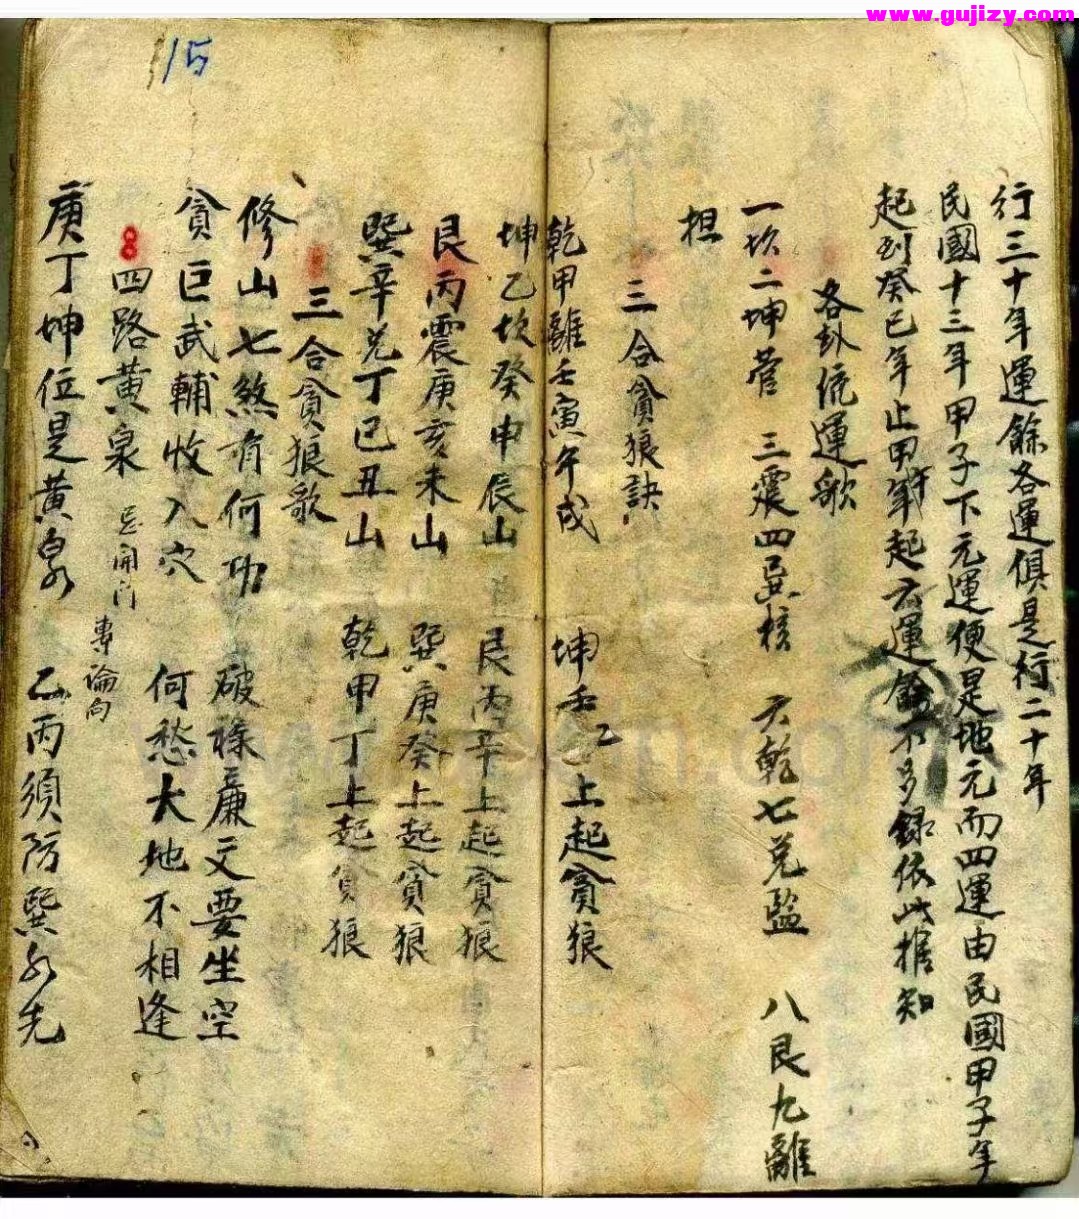 www.gujizy.com
行三十年運餘各運俱是行二十年
民國十三年甲子下元運便是地元而四運由民國甲子年
起到癸巳年止甲午年起六運餘不多錄依此推知
各卦統運歌
一坎二坤管 三震四巽接 六乾七兌監 八艮九離
担
三合貪狼訣
乾甲離壬寅午戌 坤壬乙上起貪狼
坤乙坎癸申辰山 艮丙辛上起貪狼
艮丙震庚亥未山 巽庚癸上起貪狼
巽辛兌丁巳丑山 乾甲丁上起貪狼
三合貪狼歌
修山七煞有何功 破祿廉文要坐空
貪巨武輔收入穴 何愁大地不相逢
四路黃泉 忌開门 專論向
庚丁坤位是黃泉 乙丙須防巽水先
15